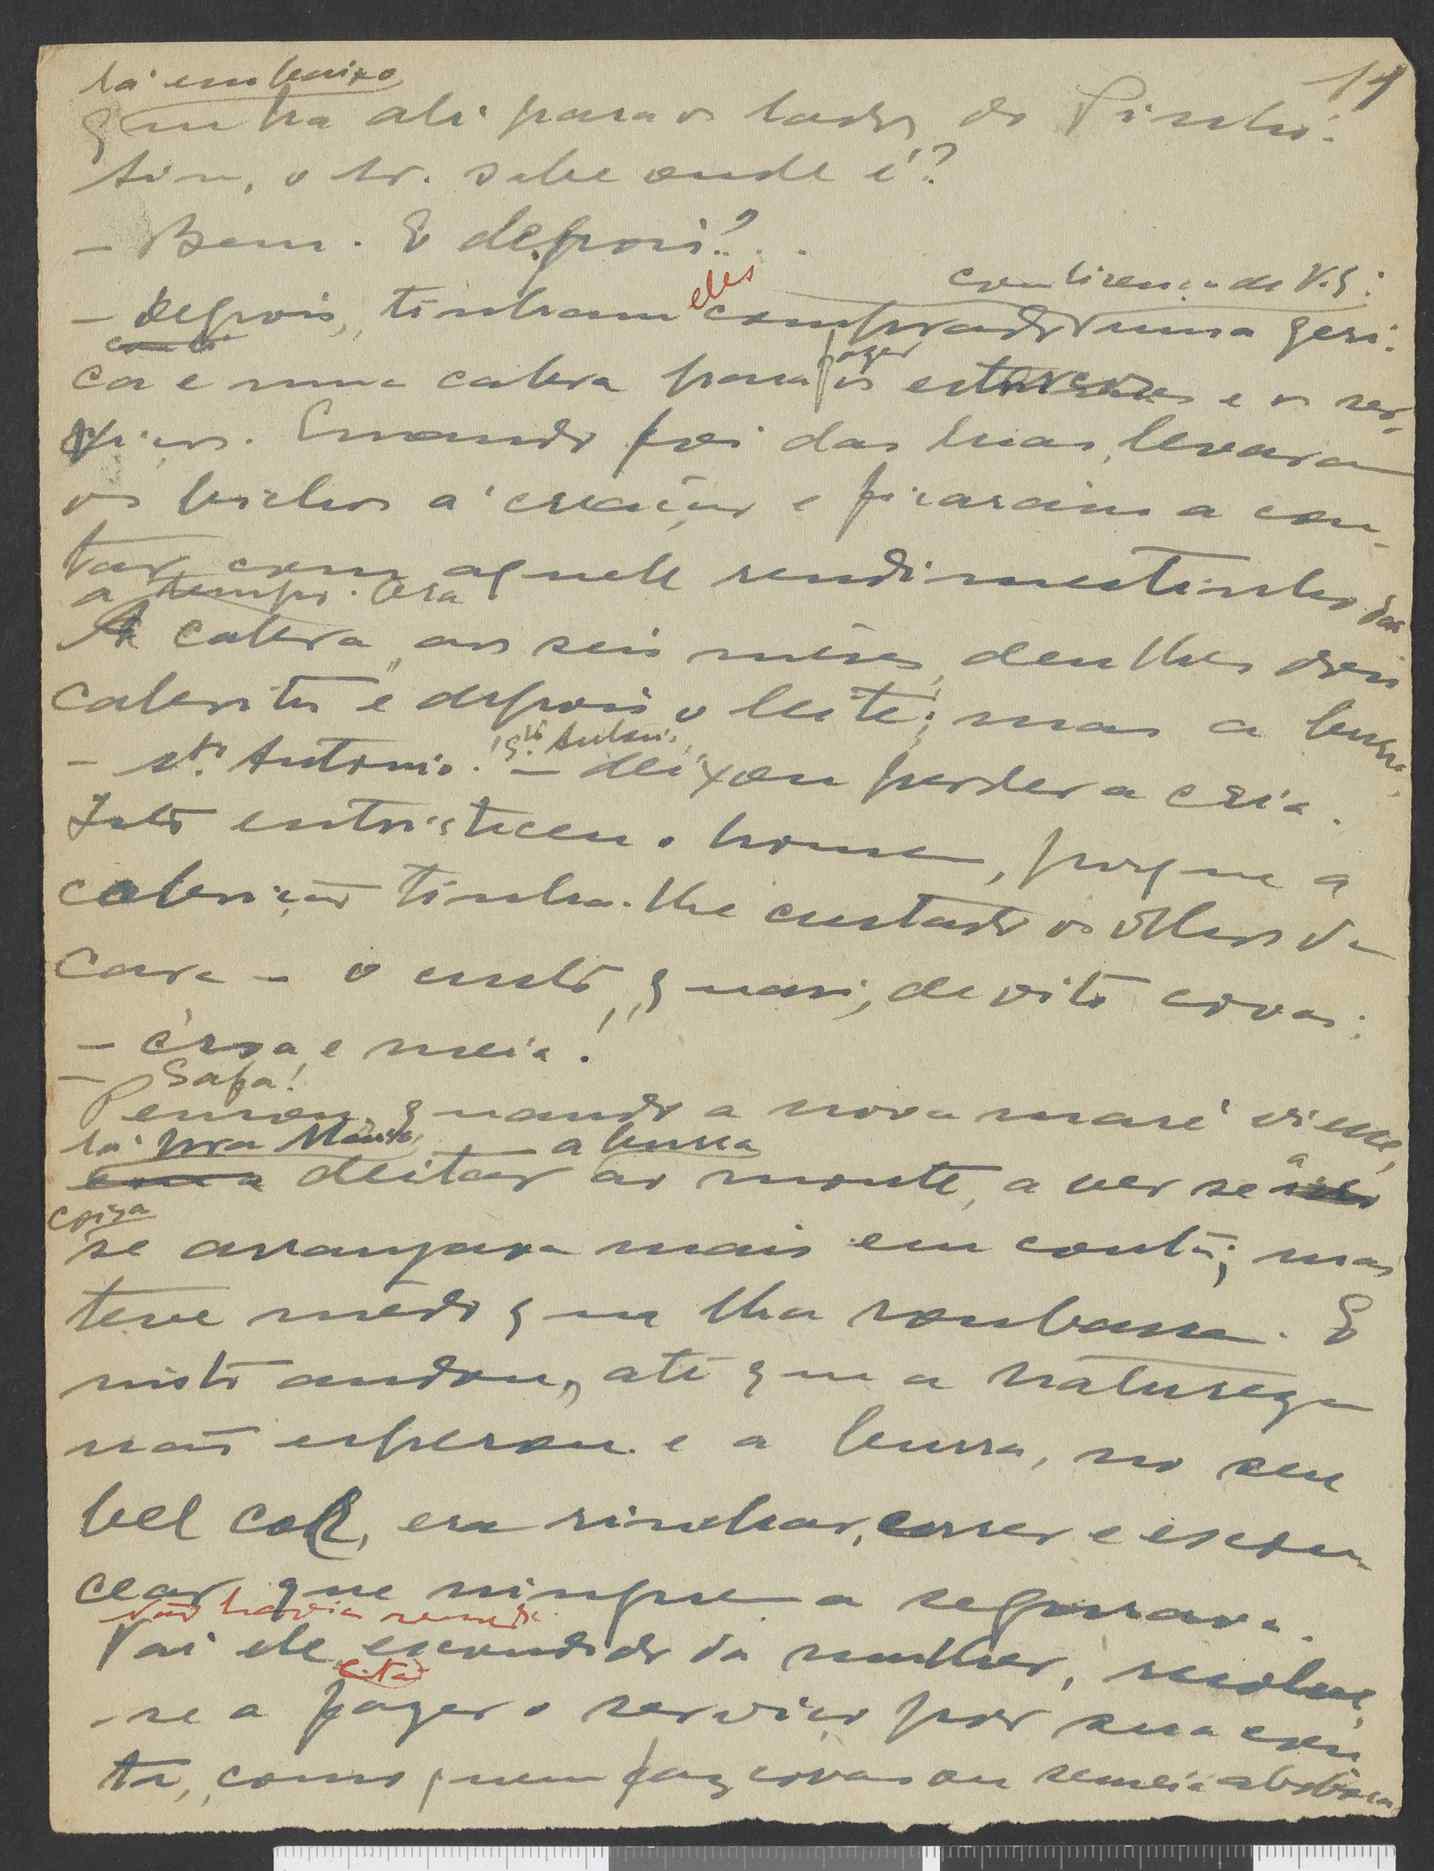 lá em baixo
14
Quinta ali para os lados do Pinhó-
tim, o sr. sabe onde é?
- Bem. E depois?..
eles
com licença de V. S.:
- Depois, tinham comprado uma geri-
ca e uma cabra para fazer os e o ser-
viço. Quando foi das luas, levaram
os bichos á creação e ficaram a con-
tar com aquele rendimentinho
a tempo. Ora
A cabra, aos seis mêses, deu-lhes dois
cabritos e depois o leite; mas a burra
- Sto. Antonio! Sto. Antonio - deixou perder a cria.
Isto entristeceu o homem, porque a
cobrição tinha-lhe custado os olhos da
cara - o custo, quasi, de oito covas:
- c'rôa e meia!
- Safa!
Pensou, quando a nova maré viesse,
a burra
deitar ao monte, a ver se a
coisa
se arranjava mais em conta; mas
teve mêdo que lha roubassem. E
nisto andou, até que a natureza
não esperou e a burra, no seu
bel era rinchar, correr e escou-
cear que ninguem a segurava.
Não havia remedio
Vai ele, escondido da mulher, resolve-
-se a fazer o serviço por sua con-
ta, como quem faz covas ou semeia abobora